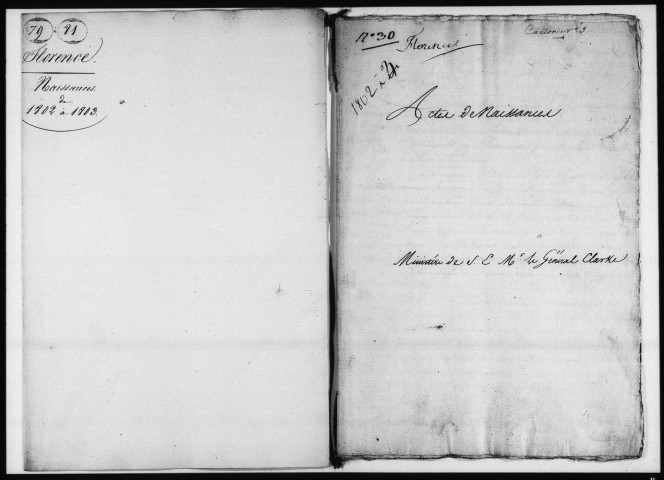 79 - 21
Florence.
Naissances
de
1802 à 1803.
N° 30
Florence
1802 à
Actes de Naissances
Ministère de S. E. Mr. le Général Clarke